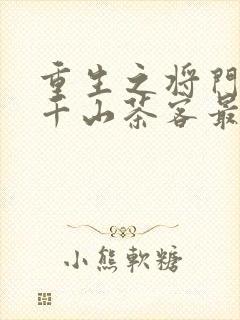 重生之将门
千山茶客最
小熊軟糖